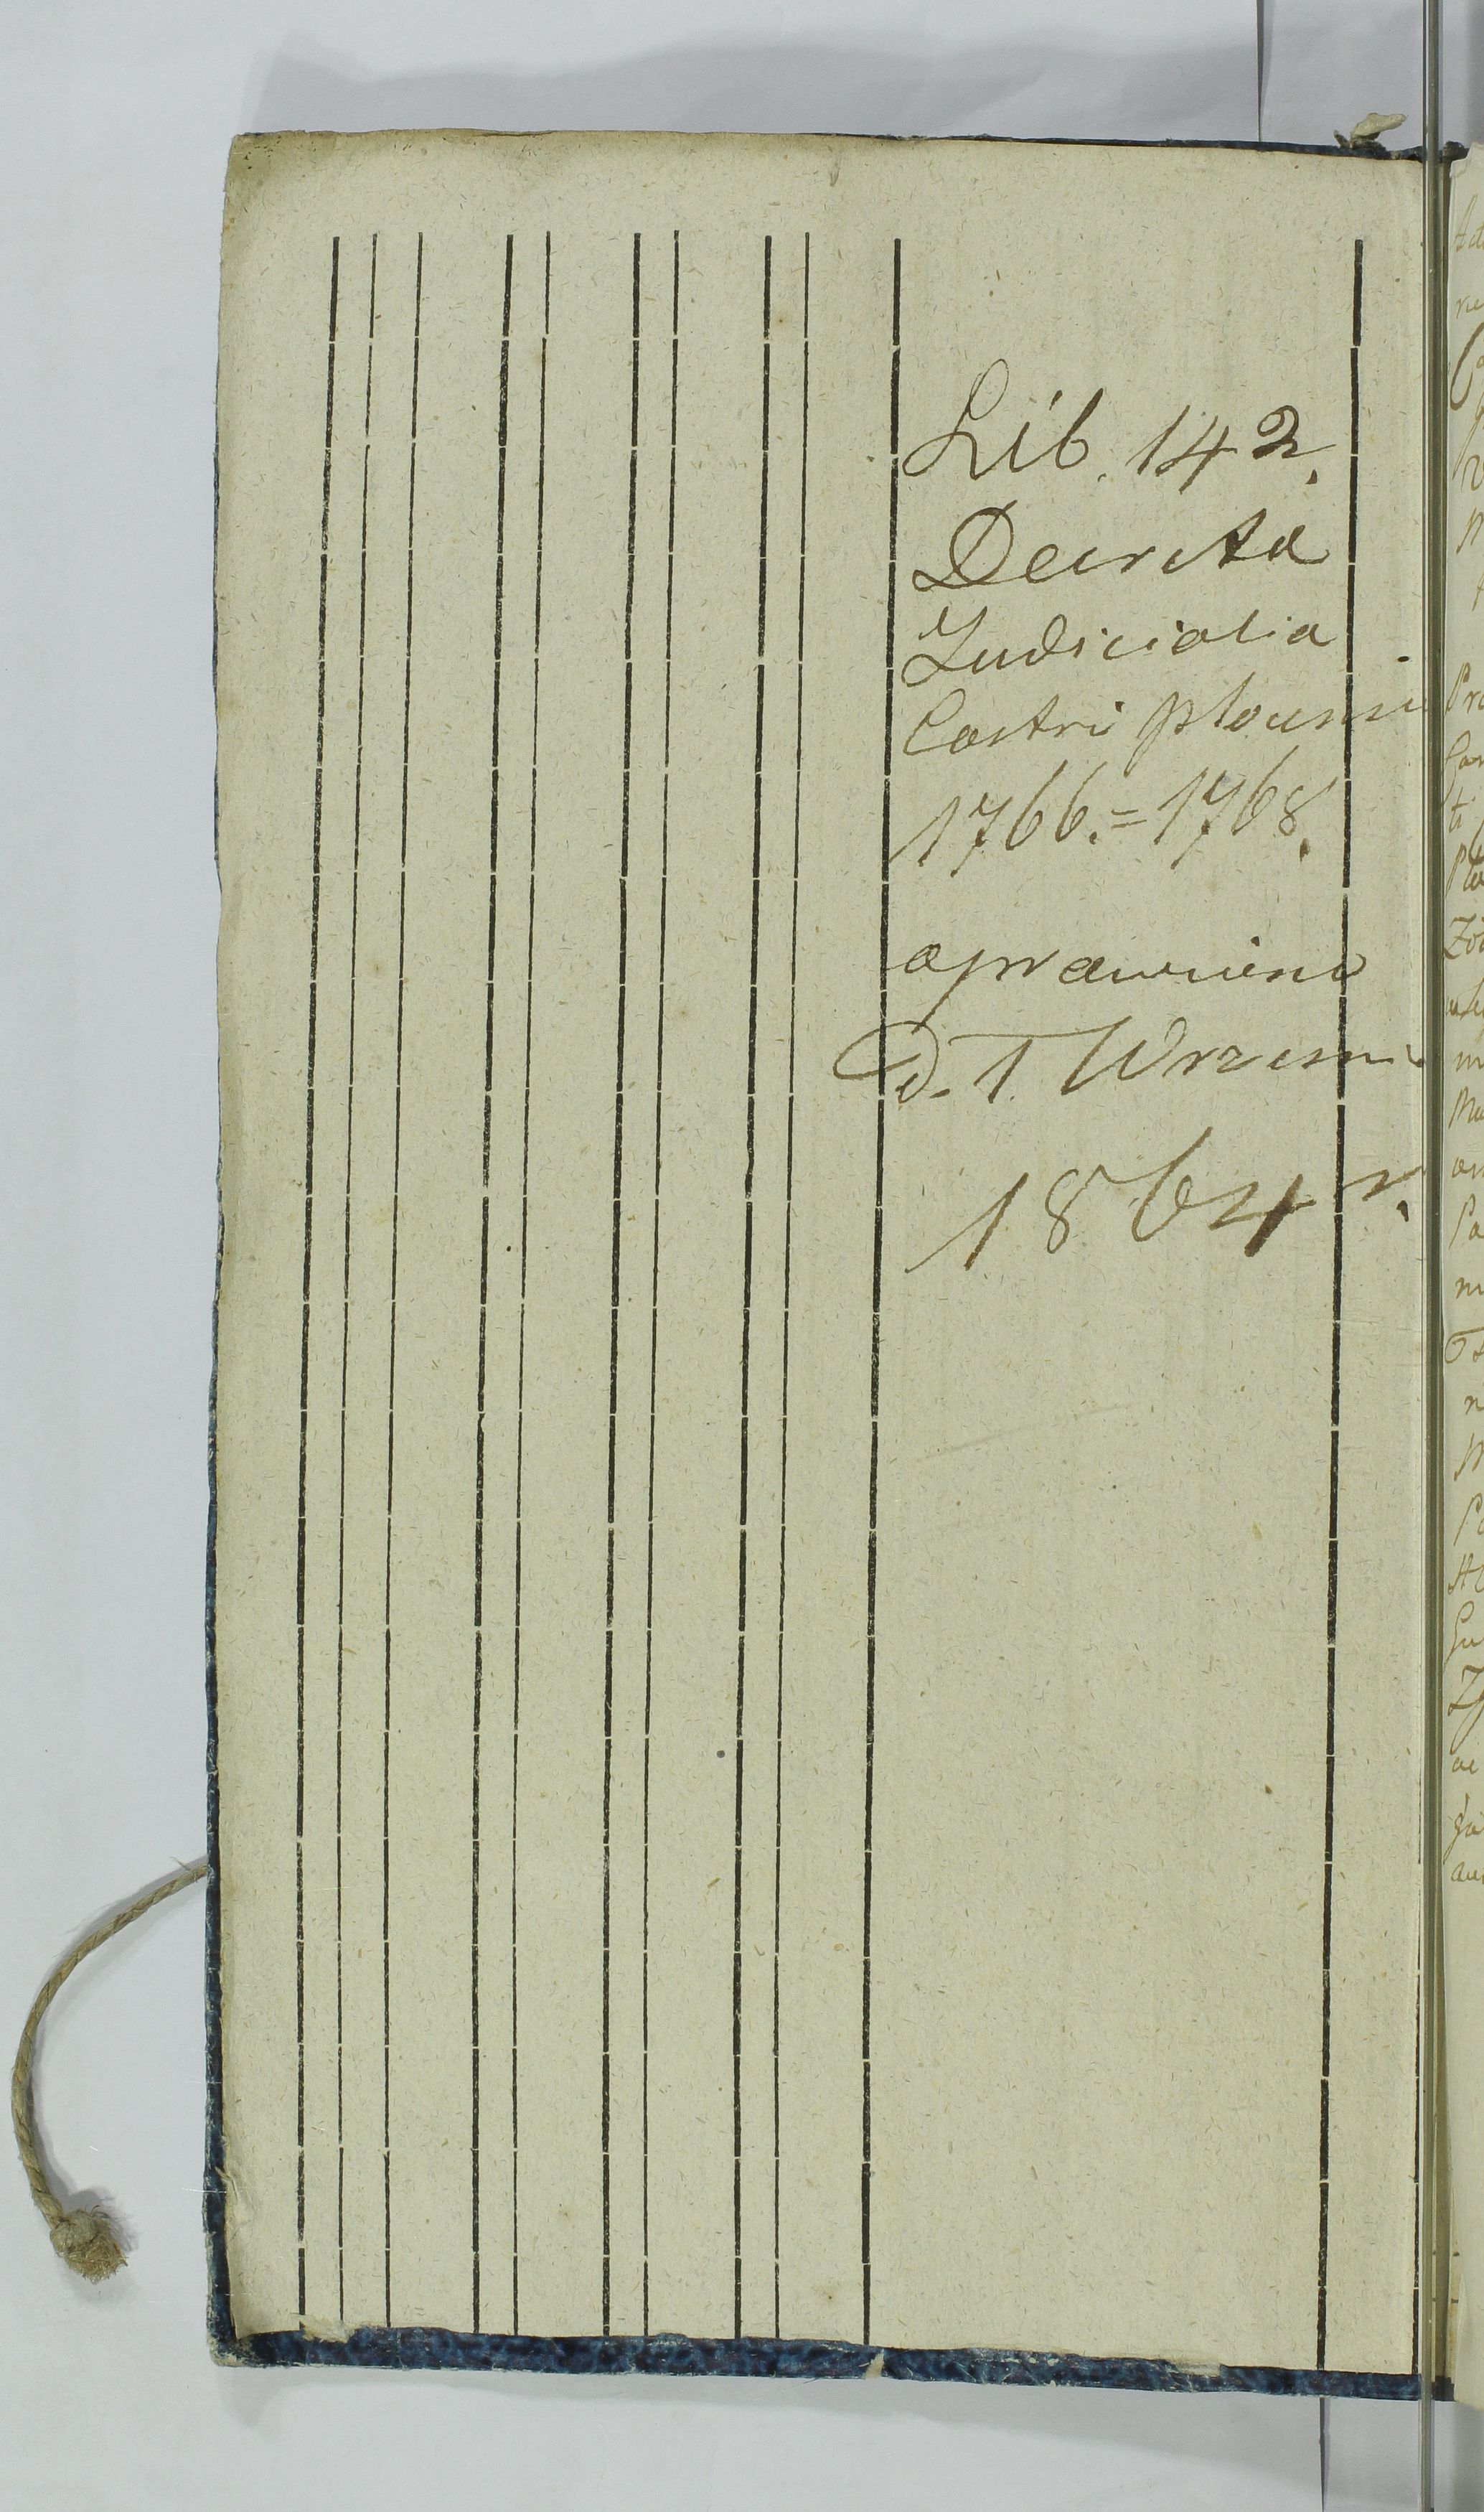 Lib. 142.
Decreta
Judicialia
Castri Plocensi
1766.=1768.
oprawiono
D. 1. Wrześni
1864 r.